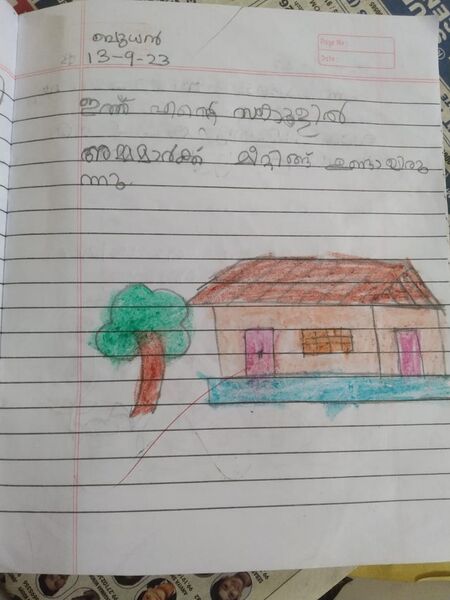 ബുധൻ
13-9-23
Page No:
Date:
ഇന്ന് എന്റെ സ്കൂളിൽ
അമ്മമാർക്ക് മീറ്റിങ്ങ് ഉണ്ടായിരു
ന്നു.